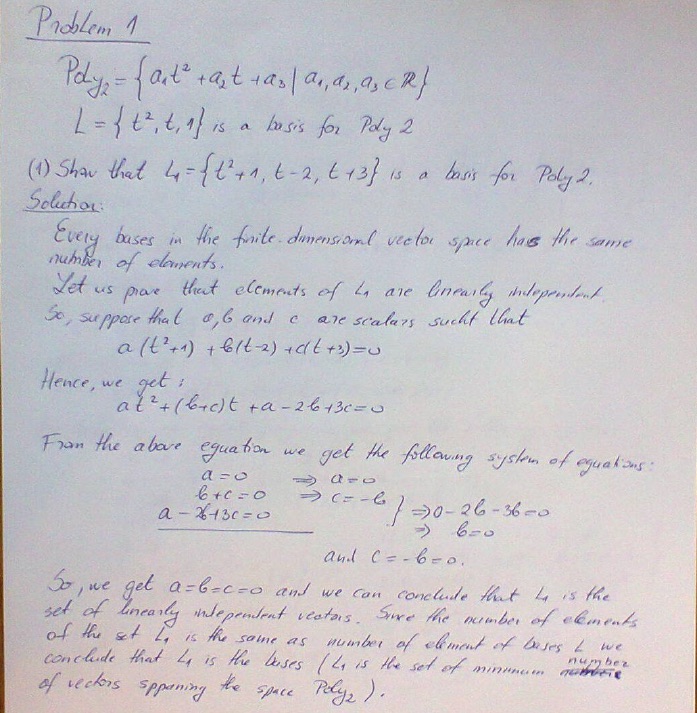 Problem 1
Poly₂ = { a₁t² + a₂t + a₃ | a₁, a₂, a₃ ∈ ℝ }
L = { t², t, 1 } is a basis for Poly 2
(1) Show that L₁ = { t²+1, t-2, t+3 } is a basis for Poly 2.
Solution:
Every bases in the finite-dimensional vector space has the same
number of elements.
Let us prove that elements of L₁ are linearly independent.
So, suppose that a, b and c are scalars sucht that
a(t²+1) + b(t-2) + c(t+3) = 0
Hence, we get:
at² + (b+c)t + a - 2b + 3c = 0
From the above equation we get the following system of equations:
a = 0 ⇒ a = 0
b + c = 0 ⇒ c = -b
a - 2b + 3c = 0 } ⇒ 0 - 2b - 3b = 0
⇒ b = 0
and c = -b = 0.
So, we get a = b = c = 0 and we can conclude that L₁ is the
set of linearly independent vectors. Since the number of elements
of the set L₁ is the same as number of element of bases L we
conclude that L₁ is the bases (L₁ is the set of minimum number
of vectors sppaning the space Poly₂).